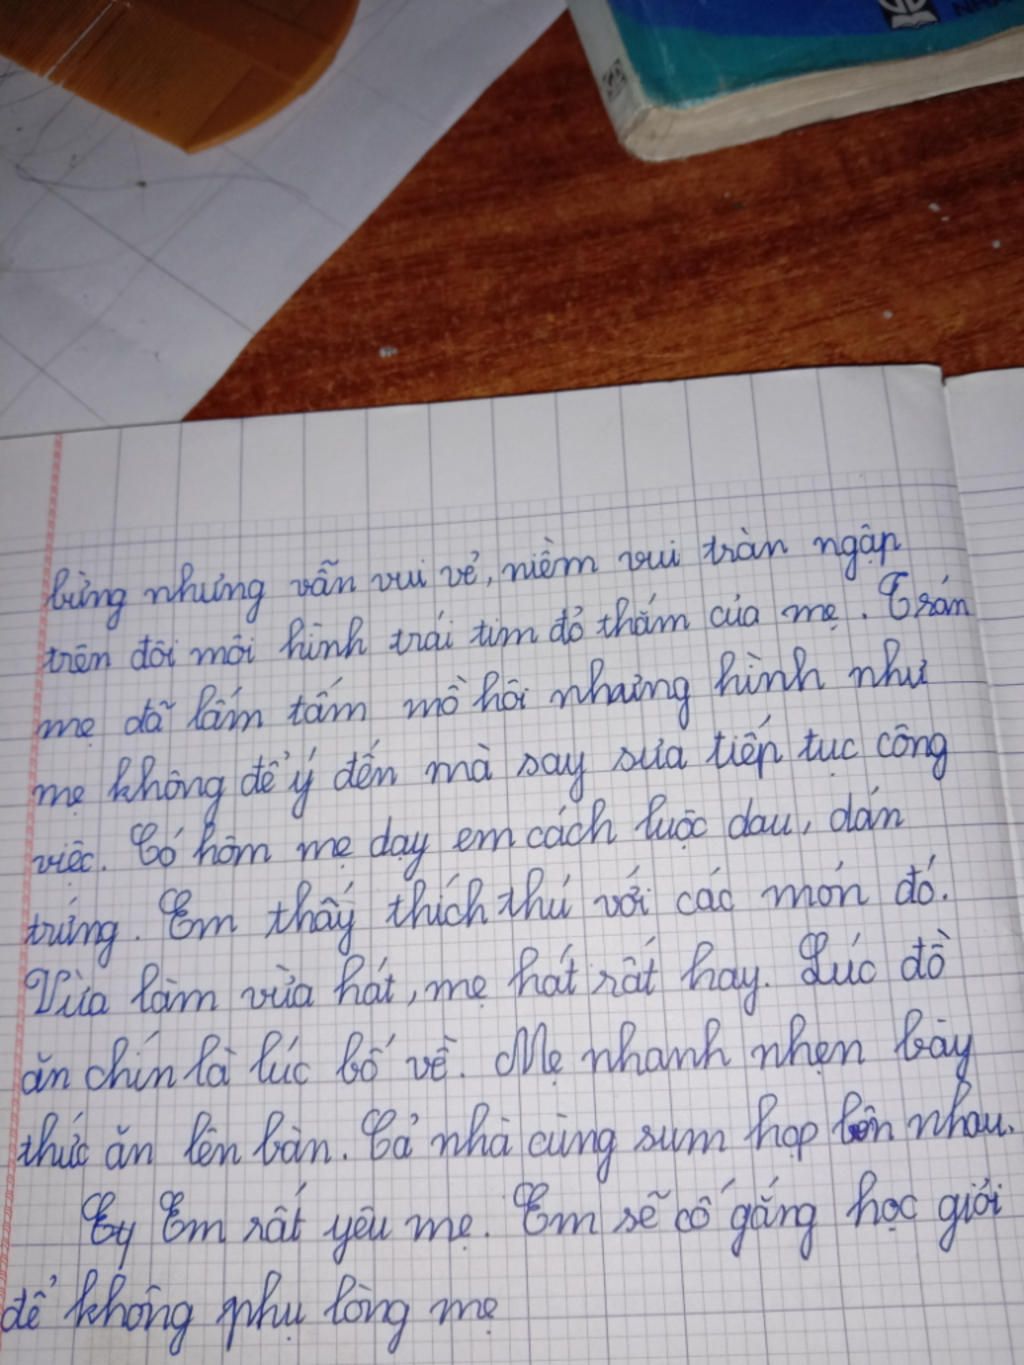 bừng nhưng vẫn vui vẻ, niềm vui tràn ngập
trên đôi môi hình trái tim đỏ thắm của mẹ. Trán
mẹ đã lấm tấm mồ hôi nhưng hình như
mẹ không để ý đến mà say sưa tiếp tục công
việc. Có hôm mẹ dạy em cách luộc dau, dán
trứng. Em thấy thích thú với các món đó.
Vừa làm vừa hát, mẹ hát rất hay. Lúc đồ
ăn chín là lúc bố về. Mẹ nhanh nhẹn bày
thức ăn lên bàn. Cả nhà cùng sum họp bên nhau.
Em rất yêu mẹ. Em sẽ cố gắng học giỏi
để không phụ lòng mẹ